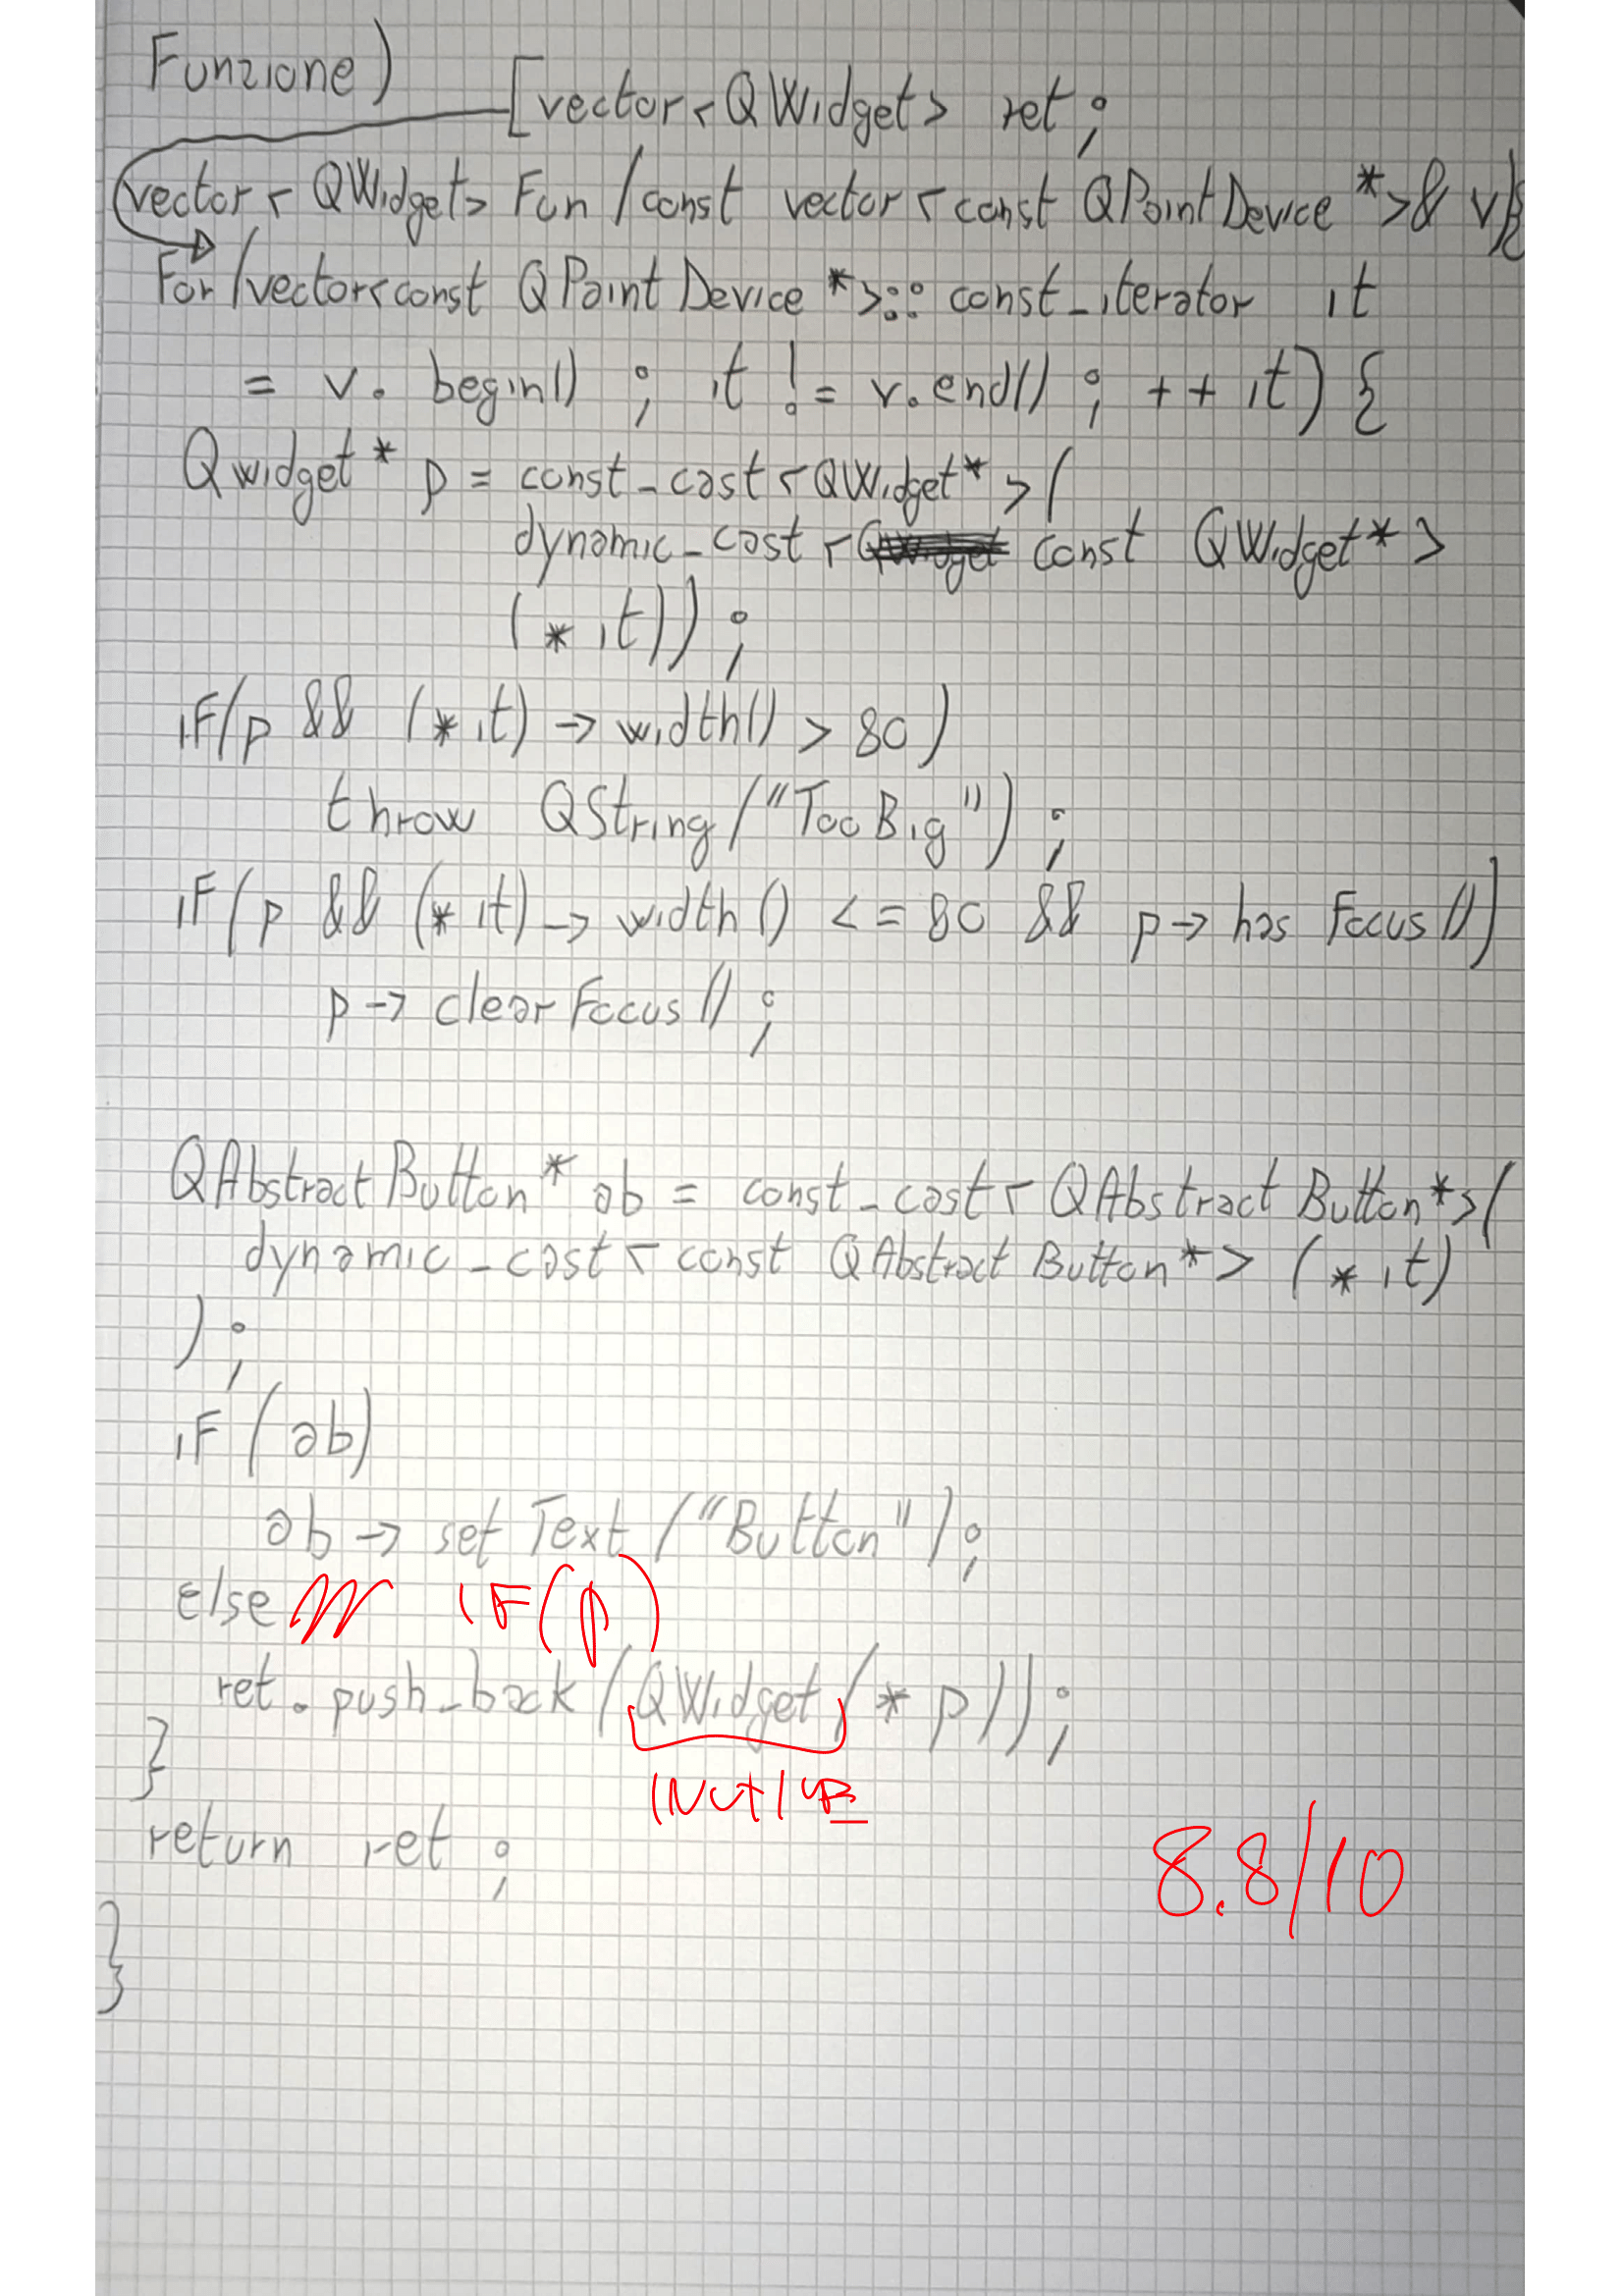 Funzione)
[vector<QWidget> ret;
vector<QWidget> Fun(const vector<const QPaintDevice*>& v){
For(vector<const QPaintDevice*>::const_iterator it
= v.begin() ; it != v.end() ; ++it) {
Qwidget* p = const_cast<QWidget*>(
dynamic_cast< const QWidget*>
(*it));
iF(p && (*it)->width() > 80)
throw QString("TooBig");
iF(p && (*it)->width() <= 80 && p->hasFocus())
p->clearFocus();
QAbstractButton* ab = const_cast<QAbstractButton*>(
dynamic_cast<const QAbstractButton*>(*it)
);
iF(ab)
ab->setText("Button");
else IF(p)
ret.push_back(QWidget(*p));
}
INUTILE
return ret;
8.8/10
}